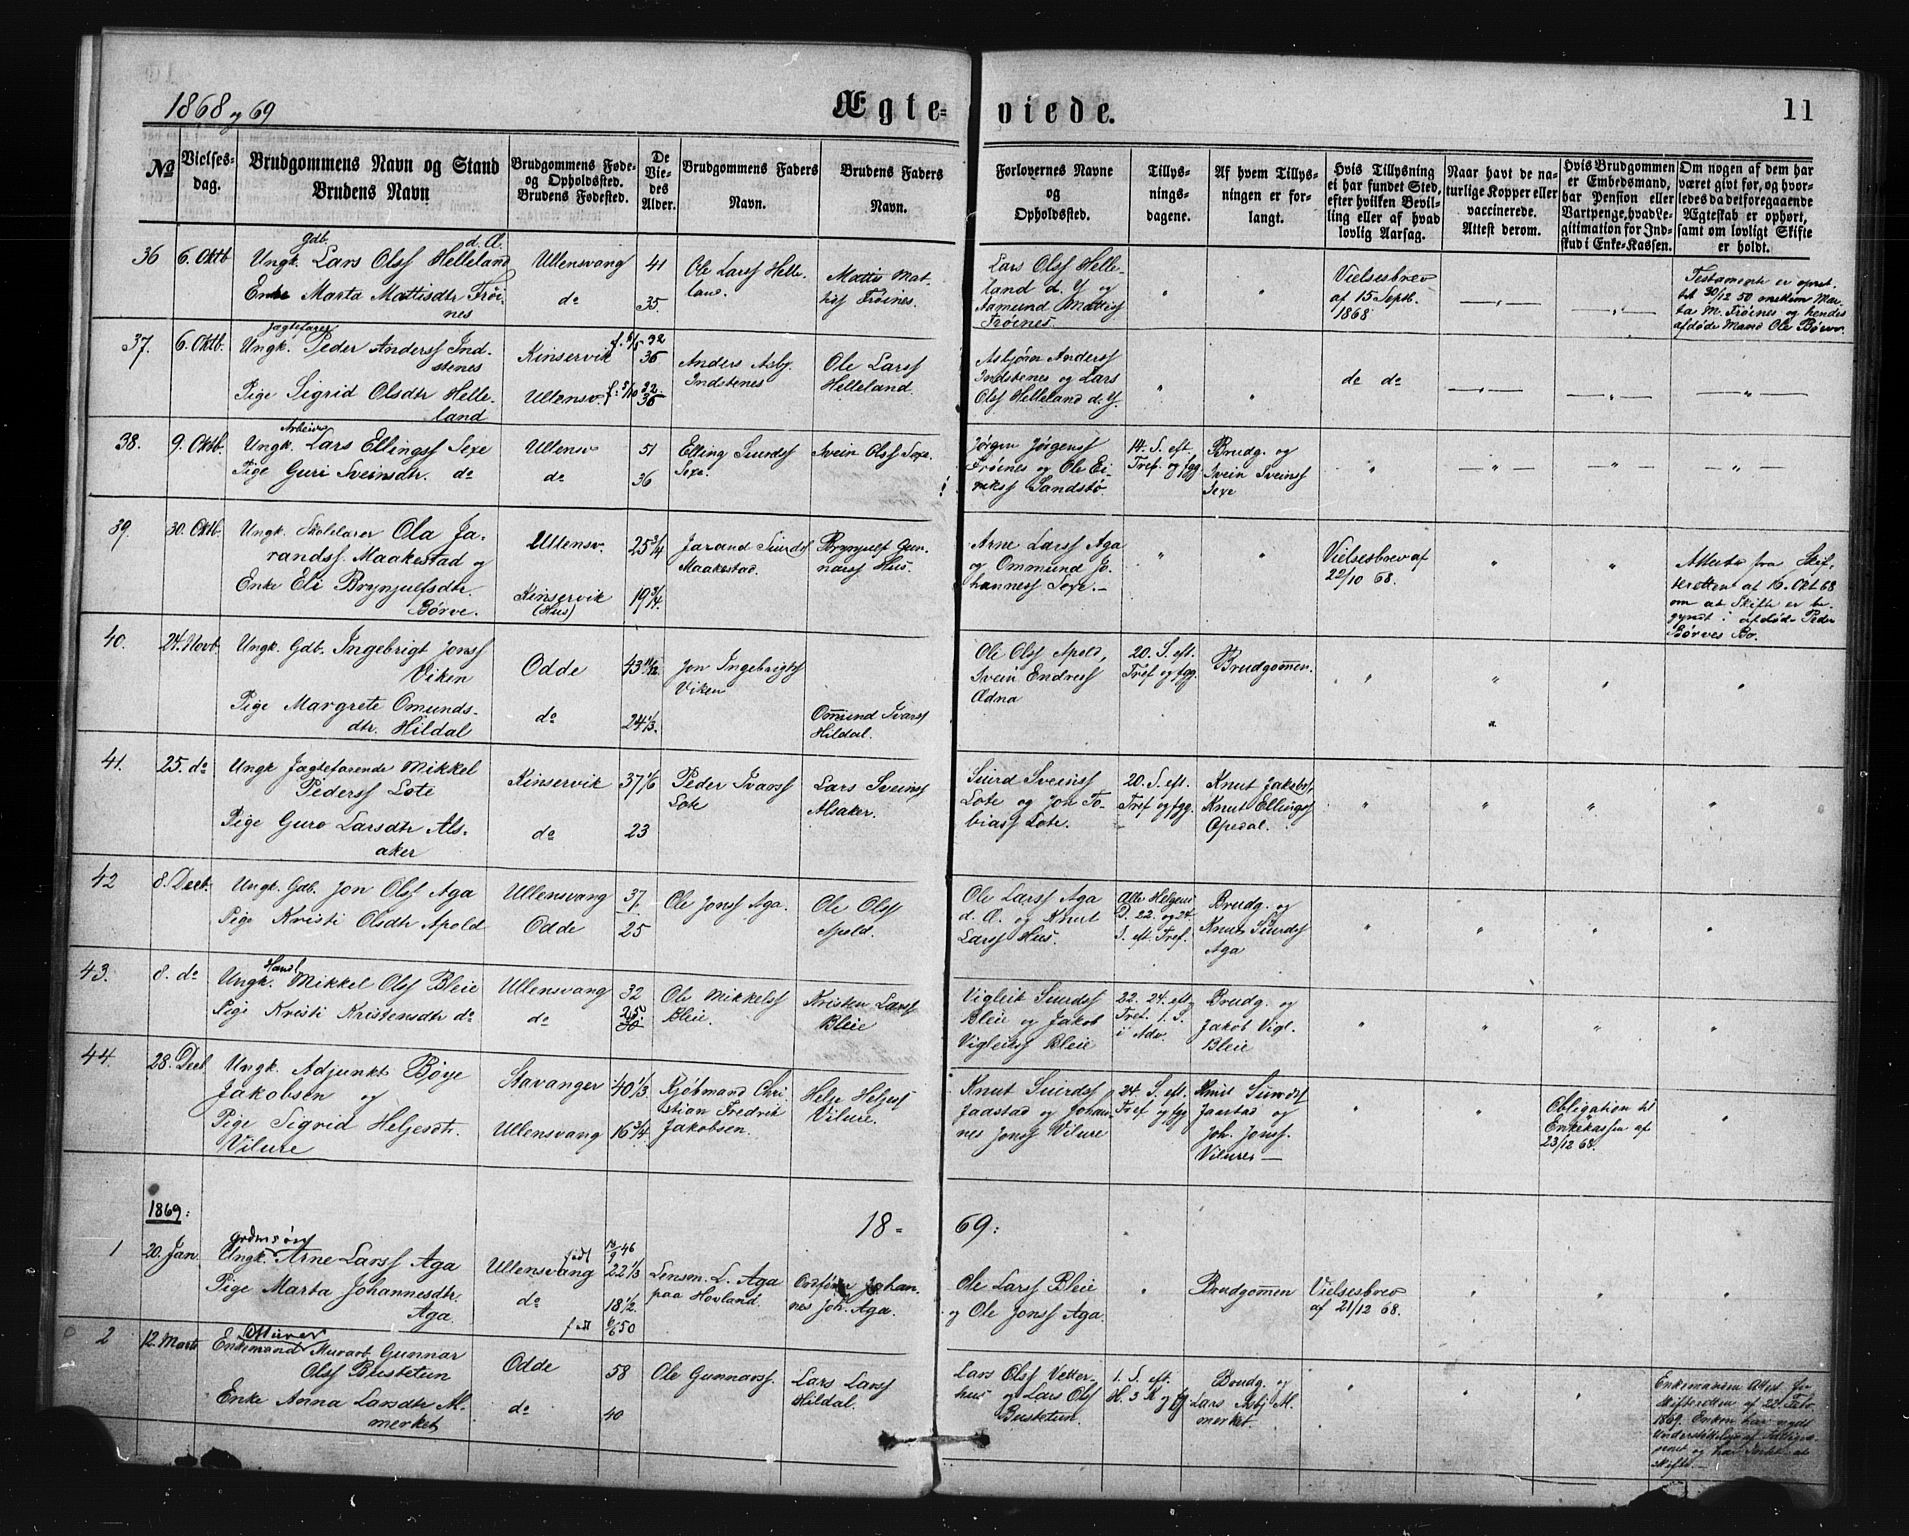 1868 og 69
Ægte-
viede.
11
No
Vielses-
dag.
Brudgommens Navn og Stand
Brudens Navn
Brudgommens Føde-
og Opholdssted.
Brudens Fødested.
De
Vie-
des
Alder.
Brudgommens Faders
Navn.
Brudens Faders
Navn.
Forlovernes Navne
og
Opholdssted.
Tillys-
nings-
dagene.
Af hvem Tillys-
ningen er for-
langt.
Hvis Tillysning
ei har fundet Sted,
efter hvilken Bevil-
ling eller af hvad
lovlig Aarsag.
Naar havt de na-
turlige Kopper eller
vaccinerede.
Attest derom.
Hvis Brudgommen
er Embedsmand,
har Pension eller
Vartpenge, hvad Le-
gitimation for Ind-
skud i Enke-Kassen.
Om nogen af dem har
været givt før, og hvor-
ledes da det foregaaende
Ægteskab er ophørt,
samt om lovligt Skifte
er holdt.
36
6. Oktb
Gdb. d. Æ.
Ungk. Lars Olsf Helleland
Enke Marta Mattisdtr Frøi-
nes
Ullensvang
do
41
35.
Ole Larsf Helle-
land.
Mattis Mat-
tisf Frøines.
Lars Olsf Helle-
land d. Y og
Aamund Mattisf
Frøines.
Vielsesbrev
af 15 Septb.
1868
Testamente er opret-
tet 30/12 50 mellem Mar-
ta M. Frøines og hendes
afdøde Mand Ole Børve.
37.
6. Oktb.
Jægtefarer
Ungk. Peder Andersf Ind-
stenes
Pige Sigrid Olsdtr Helle-
land
Kinservik
Ullensv.
36
36
Anders Asbj.
Indstenes
Ole Larsf
Helleland.
Asbjørn Andersf
Indstenes og Lars
Olsf Helleland d. Y.
do do
38.
9. Oktb.
Arbeider
Ungk. Lars Ellingsf Sexe
Pige Guri Sveinsdtr. do
Ullensv
do
51
36
Elling Siurdsf
Sexe.
Svein Olsf Sexe.
Jørgen Jørgensf
Frøines og Ole Ei-
riksf Sandstø.
14. S. eft.
Tref. og fgg.
Brudg. og
Svein Sveinsf
Sexe
39.
30. Oktb.
Ungk. Skolelærer Ola Ja-
randsf. Maakestad og
Enke Eli Brynjulfsdtr.
Børve.
Ullensv.
Kinservik
(Hus)
25 3/4
19 3/4
Jarand Siurdsf
Maakestad.
Brynjulf Gun-
narsf Hus.
Arne Larsf Aga
og Ommund Jo-
hannesf Sexe.—
Vielsesbrev af
22/10 68.
Attest fra Skif-
teretten af 16. Okt 68
om at Skifte er be-
gyndt i afdøde Peder
Børves Bo.
40.
24. Novb.
Ungk. Gdb. Ingebrigt Jonsf
Viken
Pige Margrete Omunds-
dtr. Hildal
Odde
do
43 11/12.
24 1/3.
Jon Ingebrigtsf
Viken
Ommund Ivarsf
Hildal.
Ole Olsf Apold,
Svein Endresf
Ædna
20. S. eft.
Tref og fgg.
Brudgommen.
41.
25. do
Ungk Jægtefarende Mikkel
Pedersf Lote
Pige Guro Larsdtr Als-
aker
Kinservik
do
37 1/6
23
Peder Ivarsf
Lote
Lars Sveinsf
Alsaker.
Siurd Sveinsf
Lote og Jon To-
biasf Lote.
20. S. eft.
Tref og fgg.
Knut Jakobsf,
Knut Ellingsf
Opedal.
42
8. Decb.
Ungk. Gdb. Jon Olsf Aga
Pige Kristi Olsdtr Apold
Ullensvang
Odde
37.
25
Ole Jonsf Aga.
Ole Olsf
Apold.
Ole Larsf Aga
d. Æ. og Knut
Larsf Hus.
Alle Helgens
D. 22. og 24.
S. eft. Tref.
Brudg. og
Knut Siurdsf
Aga
43.
8. do
Ungk. Mikkel Olsf Bleie
Pige Kristi Kristensdtr do
Ullensvang
do
32
25
Ole Mikkelsf
Bleie.
Kristen Larsf
Bleie
Vigleik Siurdsf
Bleie og Jakob
Vigleiksf Bleie
22. 24. eft
Tref. 1. S.
i Adv.
Brudg. og
Jakob Vigl.
Bleie
44.
28. Decb
Ungk. Adjunkt Bøye
Jakobsen og
Pige Sigrid Heljesdtr.
Vilure
Stavanger
Ullensvang
40 1/3
16 3/4
Kjøbmand Chri-
stian Fredrik
Jakobsen.
Helje Heljesf
Vilure.
Knut Siurdsf
Jaastad og Johan-
nes Jonsf Vilure
24. S. eft.
Tref og fgg
Knut Siurdsf
Jaastad og
Joh. Jonsf.
Vilure—
Obligation til
Enkekassen af
23/12 68.
1869:
18-
69:
1
20. Jan.
Gdmsøn
Ungk. Arne Larsf Aga
Pige Marta Johannesdtr.
Aga.
Ullensvang
do
født 18/9 46
22 1/3
18 1/2
født 6/6 50
Lensm. L. Aga
paa Hovland.
Ordfører Johan-
nes Joh. Aga.
Ole Larsf Bleie
og Ole Jonsf Aga.
Brudgommen
Vielsesbrev
af 21/12 68.
2
12. Marts
Murer
Enkemand Murarb. Gunnar
Olsf Bustetun
Enke Anna Larsdtr M-
merket
Odde
do
58
40
Ole Gunnarsf.
Lars Larsf
Hildal.
Lars Olsf Vetter-
hus og Lars Olsf
Bustetun.
1. S. eft.
H. 3 K og fg.
Brudg. og
Lars Asbj M-
merket.
Enkemanden Attest fra
Skifteretten af 22. Febr.
1869. Enken har nydt
Understøttelse af Fattigvæ-
senet og har Intet at
skifte.—